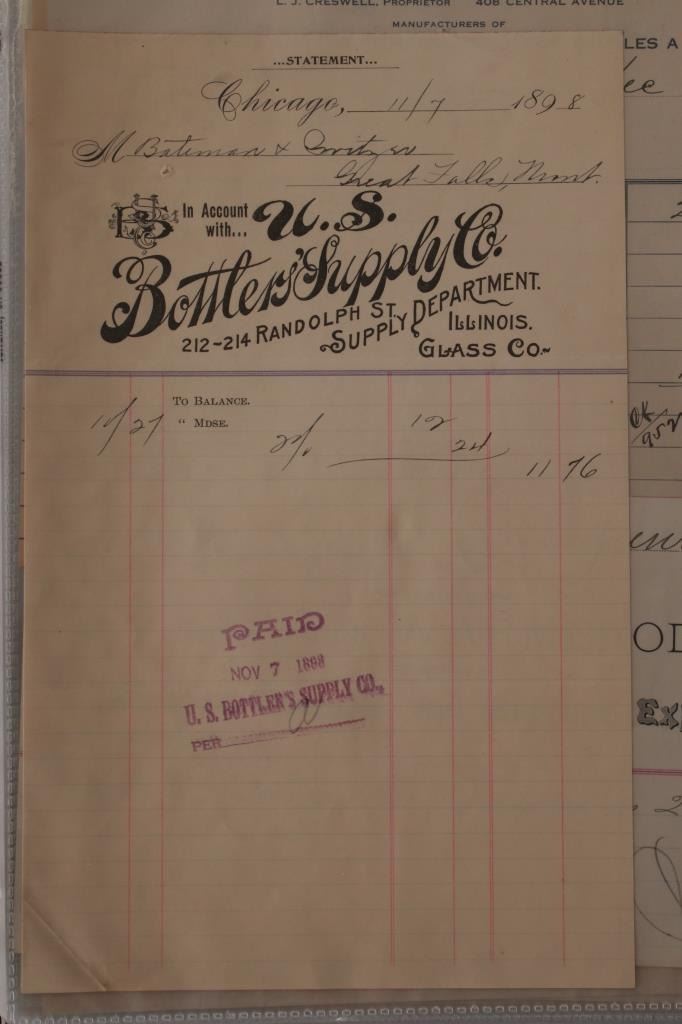 L. J. CRESWELL, PROPRIETOR 408 CENTRAL AVENUE
MANUFACTURERS OF
LES A
...STATEMENT...
Chicago, 11/7 1898
M Bateman & Switzer
Great Falls, Mont.
In Account
with...
U.S.
Bottlers' Supply Co.
212-214 RANDOLPH ST.
SUPPLY DEPARTMENT.
ILLINOIS.
GLASS CO.
TO BALANCE.
10/27 " MDSE. 12
2% 24
11 76
PAID
NOV 7 1898
U. S. BOTTLER'S SUPPLY CO.,
PER
OK
952
OD
EX
2